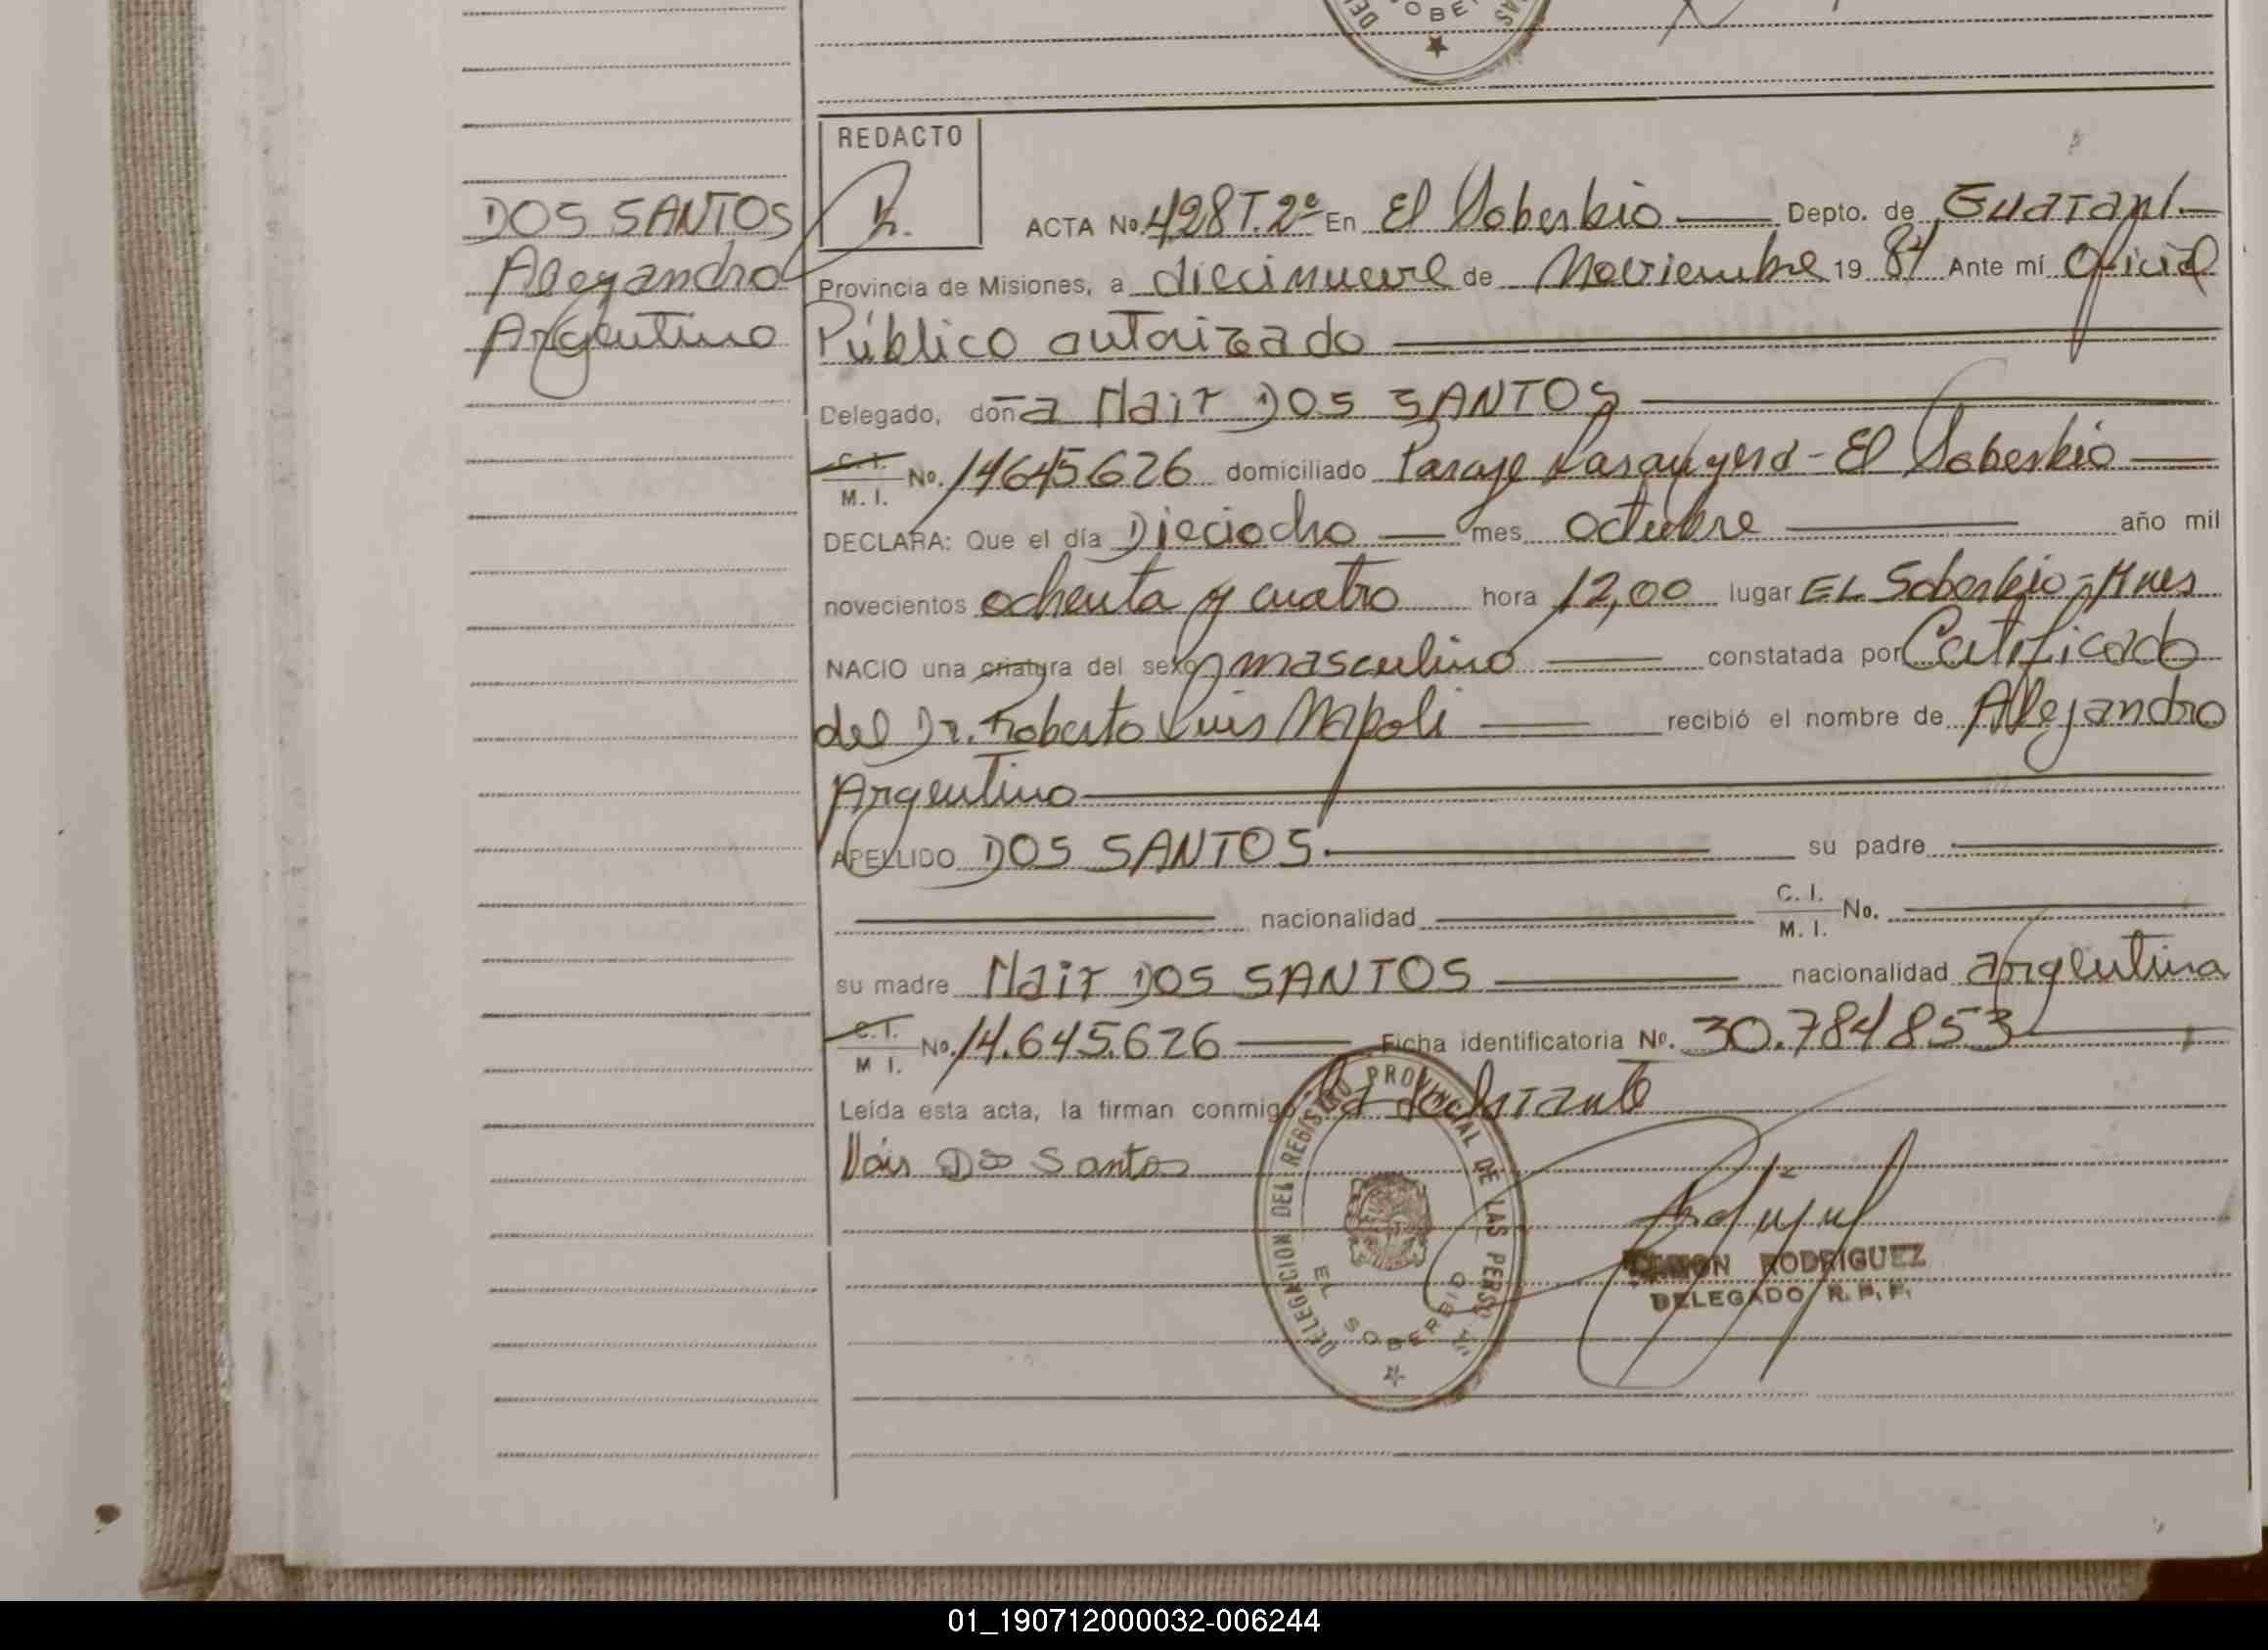 SOBE
REDACTO
DOS SANTOS
Alejandro
Argentino
ACTA No. 428 T. 2º En El Soberbio Depto. de Guaraní
Provincia de Misiones, a diecinueve de Noviembre 19 84 Ante mí Oficial
Público autorizado
Delegado, doña Nair DOS SANTOS
C. I. / M. I. No. 14645626 domiciliado Paraje El Soberbio
DECLARA: Que el día Dieciocho mes octubre año mil
novecientos ochenta y cuatro hora 12,00 lugar EL Soberbio - Mnes
NACIO una criatura del sexo masculino constatada por Certificado
del Dr. Roberto Luis Napoli recibió el nombre de Alejandro
Argentino
APELLIDO DOS SANTOS su padre
nacionalidad C. I. / M. I. No.
su madre Nair DOS SANTOS nacionalidad argentina
C. I. / M I. No. 14.645.626 Ficha identificatoria No. 30.784853
Leída esta acta, la firman conmigo La declarante
Nair Dos Santos
DELEGACION DEL REGISTRO PROVINCIAL DE LAS PERS.
EL SOBERBIO
RAMON RODRIGUEZ
DELEGADO R. P. P.
01_190712000032-006244